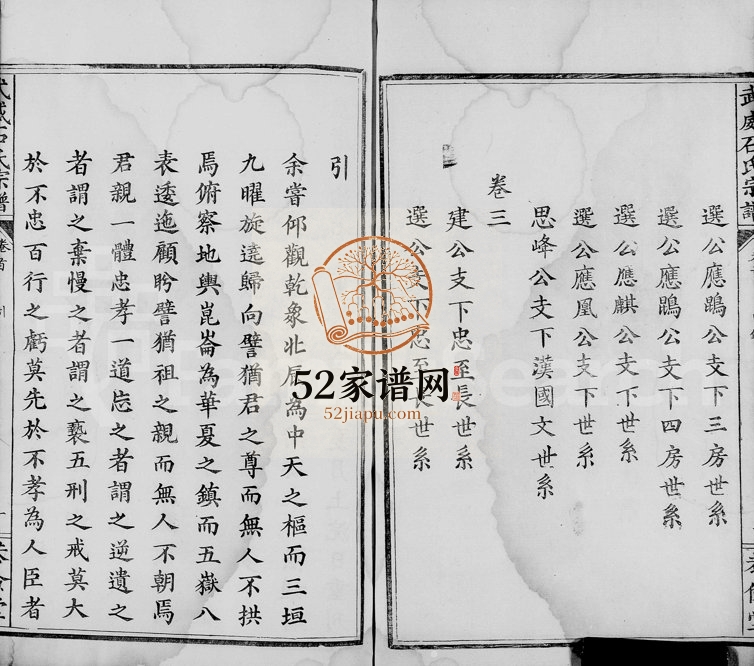 武威石氏宗譜
選公應鵾公支下三房世系
選公應鵾公支下四房世系
選公應麒公支下世系
選公應凰公支下世系
思峰公支下漢國文世系
卷三
建公支下忠至長世系
選公支下忠至長世系
引
余嘗仰觀乾象北辰為中天之樞而三垣
九曜旋遶歸向譬猶君之尊而無人不拱
焉俯察地輿崑崙為華夏之鎮而五嶽八
表逶迤顧盻譬猶祖之親而無人不朝焉
君親一體忠孝一道忘之者謂之逆遺之
者謂之棄慢之者謂之褻五刑之戒莫大
於不忠百行之虧莫先於不孝為人臣者
武威石氏宗譜
卷首
引
52家谱网
52jiapu.com